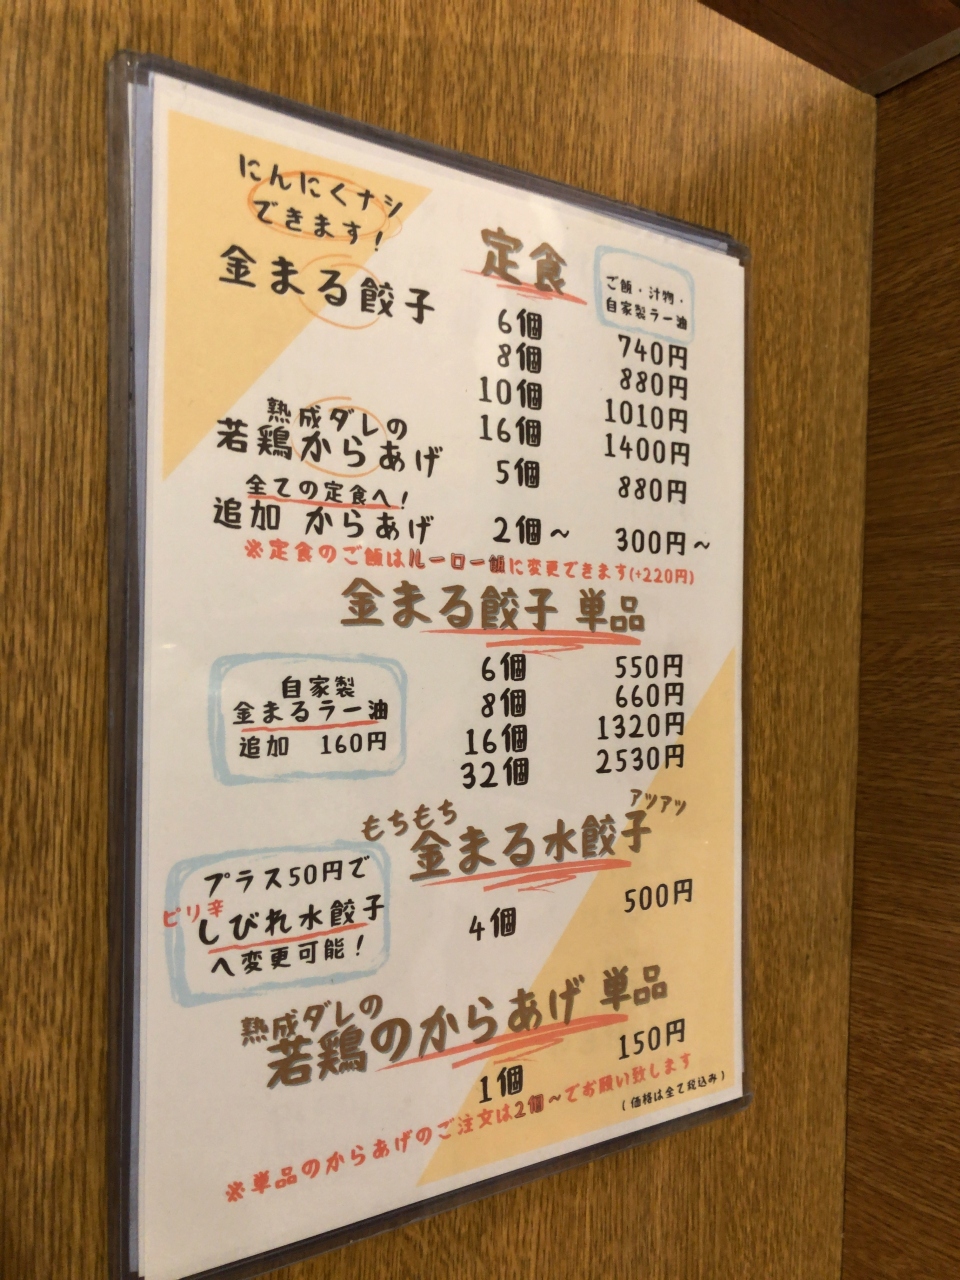 にんにくナシ
できます!
定食
ご飯・汁物・
自家製ラー油
金まる餃子
6個 740円
8個 880円
10個 1010円
16個 1400円
熟成ダレの
若鶏からあげ 5個 880円
全ての定食へ!
追加 からあげ 2個~ 300円~
※定食のご飯はルーロー飯に変更できます(+220円)
金まる餃子 単品
6個 550円
8個 660円
16個 1320円
32個 2530円
自家製
金まるラー油
追加 160円
もちもち
アツアツ
金まる水餃子
4個 500円
プラス50円で
ピリ辛
しびれ水餃子
へ変更可能!
熟成ダレの
若鶏のからあげ 単品
1個 150円
※単品のからあげのご注文は2個~でお願い致します
(価格は全て税込み)